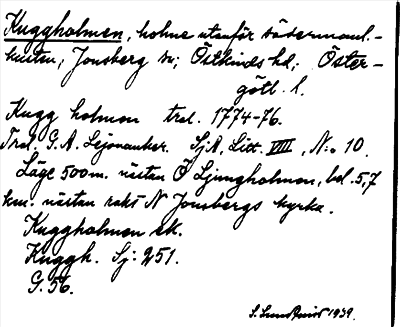 Kuggholmen, holme utanför Södermanl.-
kusten, Jonsberg sn; Östkinds hd; Öster-
götl. l.
Kugg holmen trol. 1774-76.
Trol. G.A. Lejonanker. Sj.A. Litt. VIII, N:o 10.
Läge 500m. nästan Ö Ljungholmen, bd. 5,7
km. nästan rakt N Jonsbergs kyrka.
Kuggholmen ek.
Kuggh. Sj: 251.
G. 56.
1939.